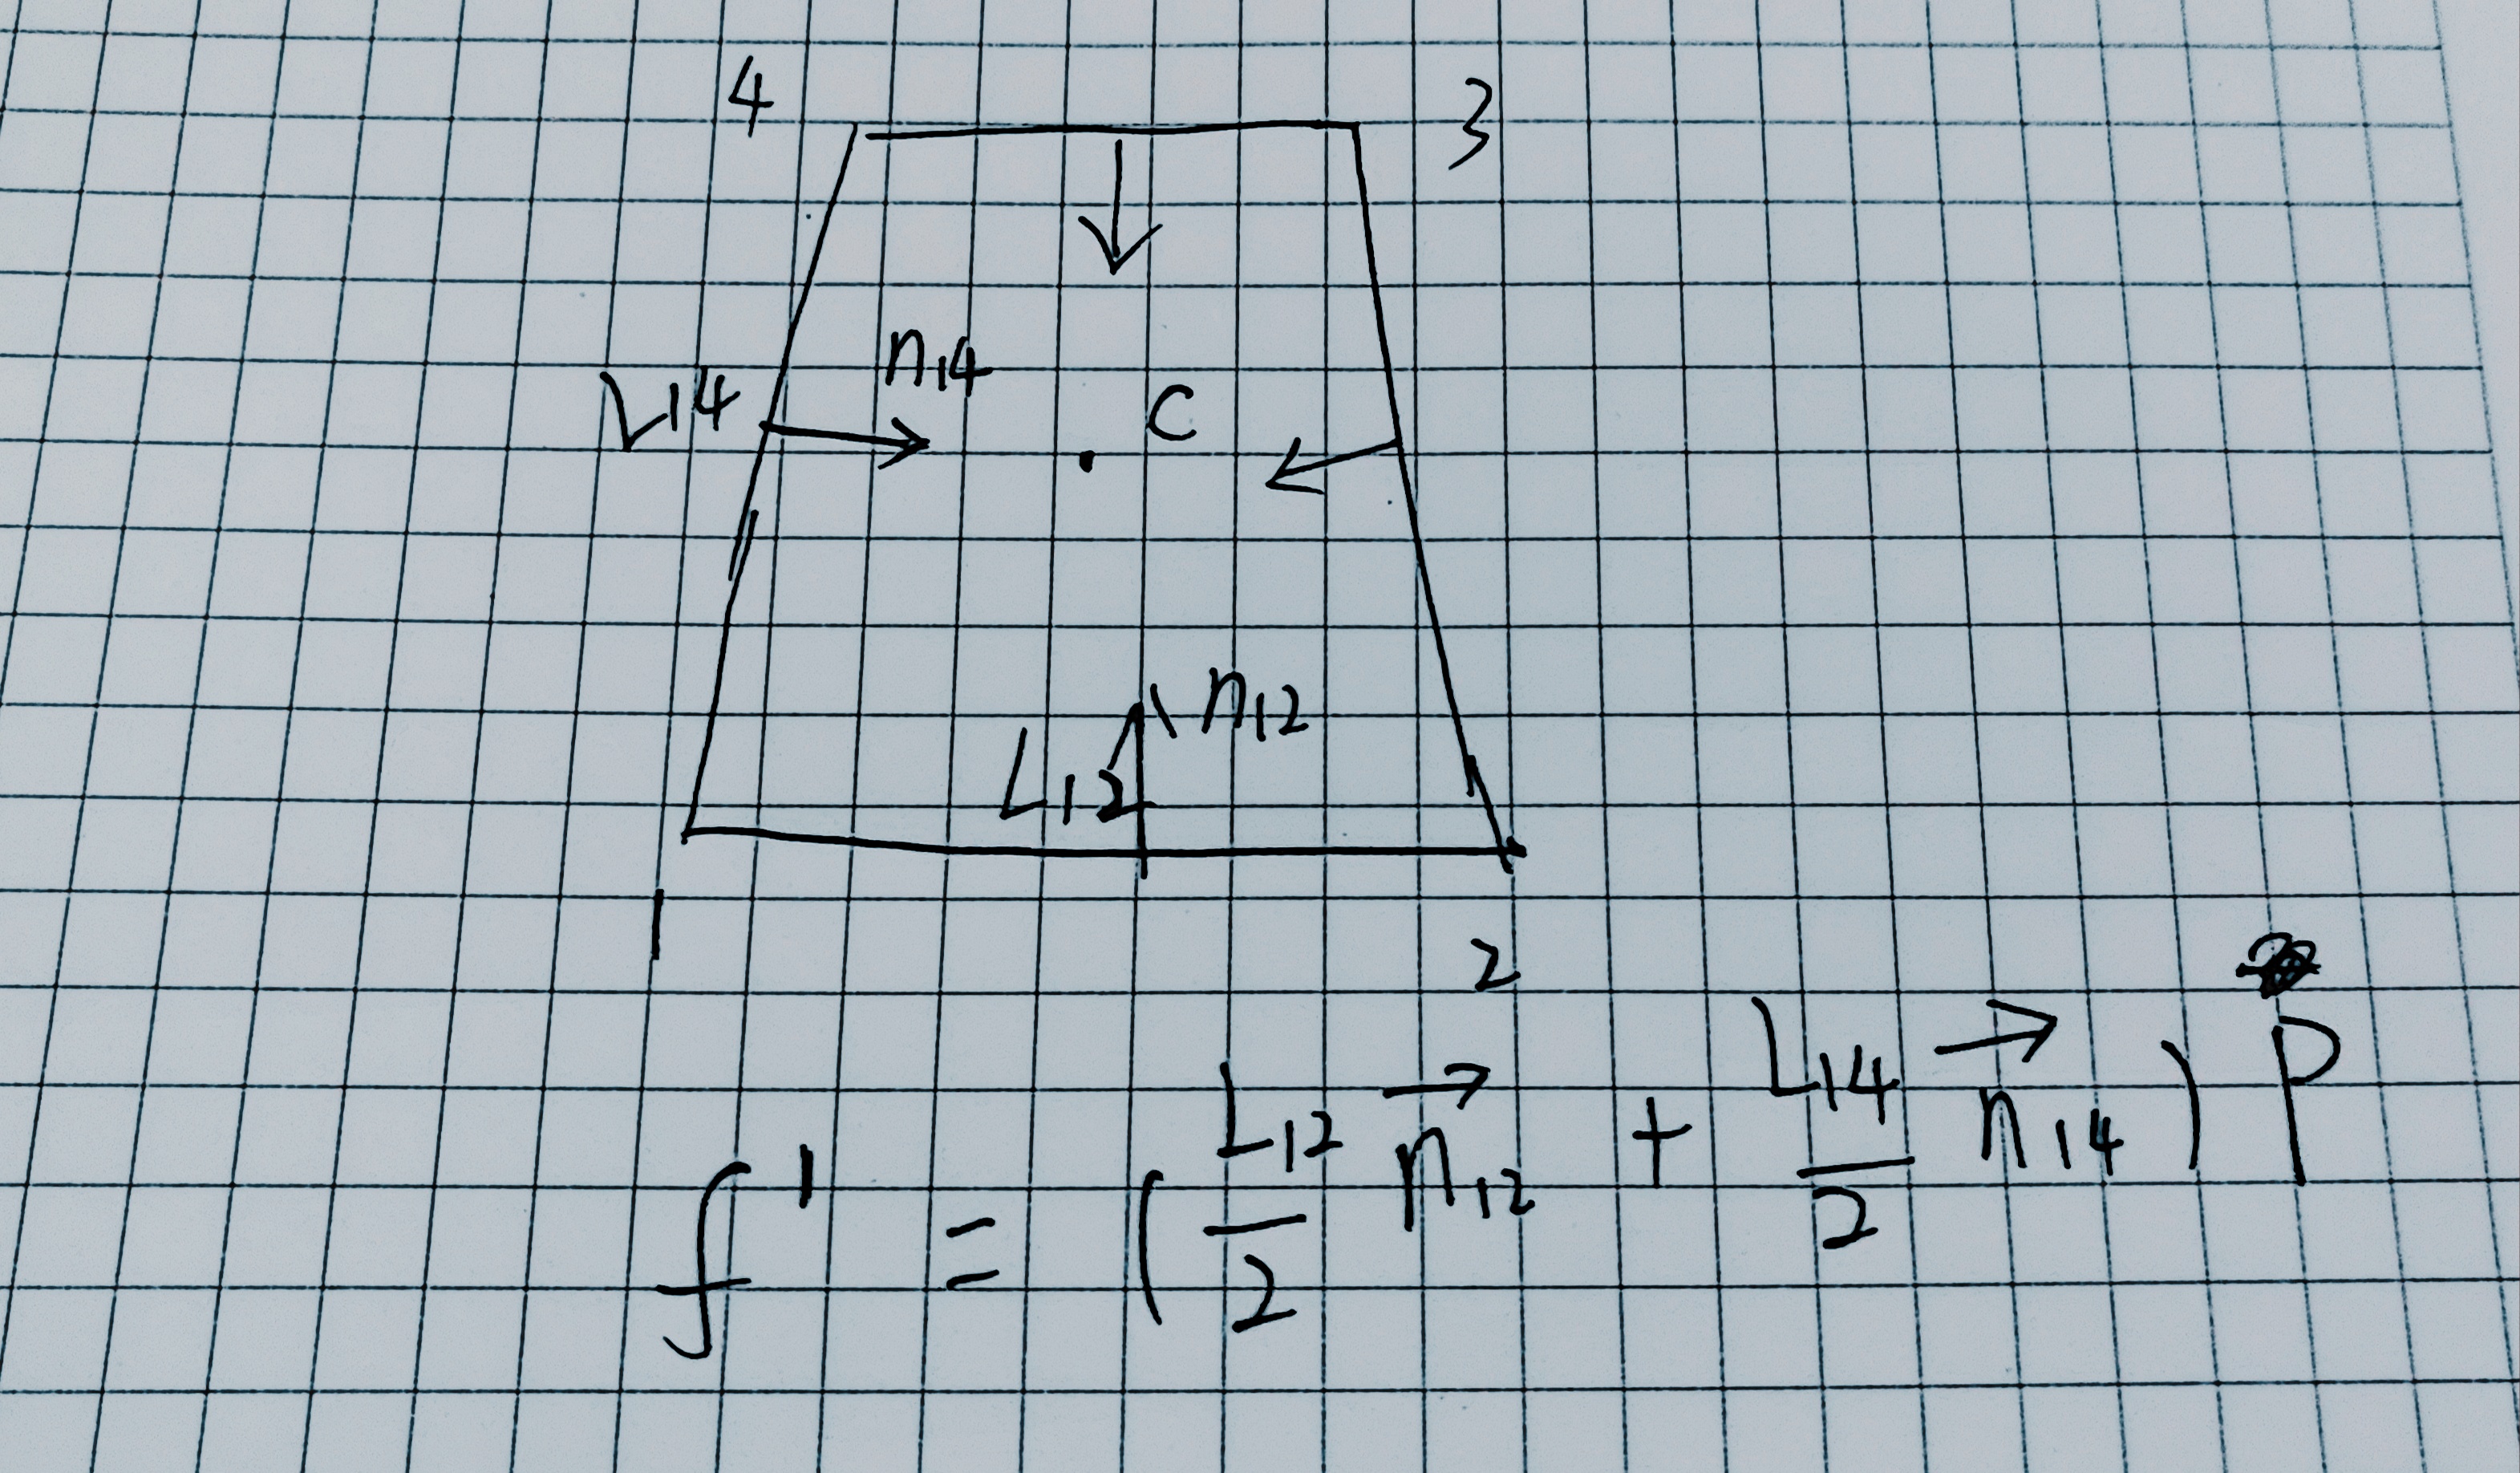 4 3
n14
L14 C
n12
L12
1 2
f¹ = ( L12/2 n⃗12 + L14/2 n⃗14 ) P